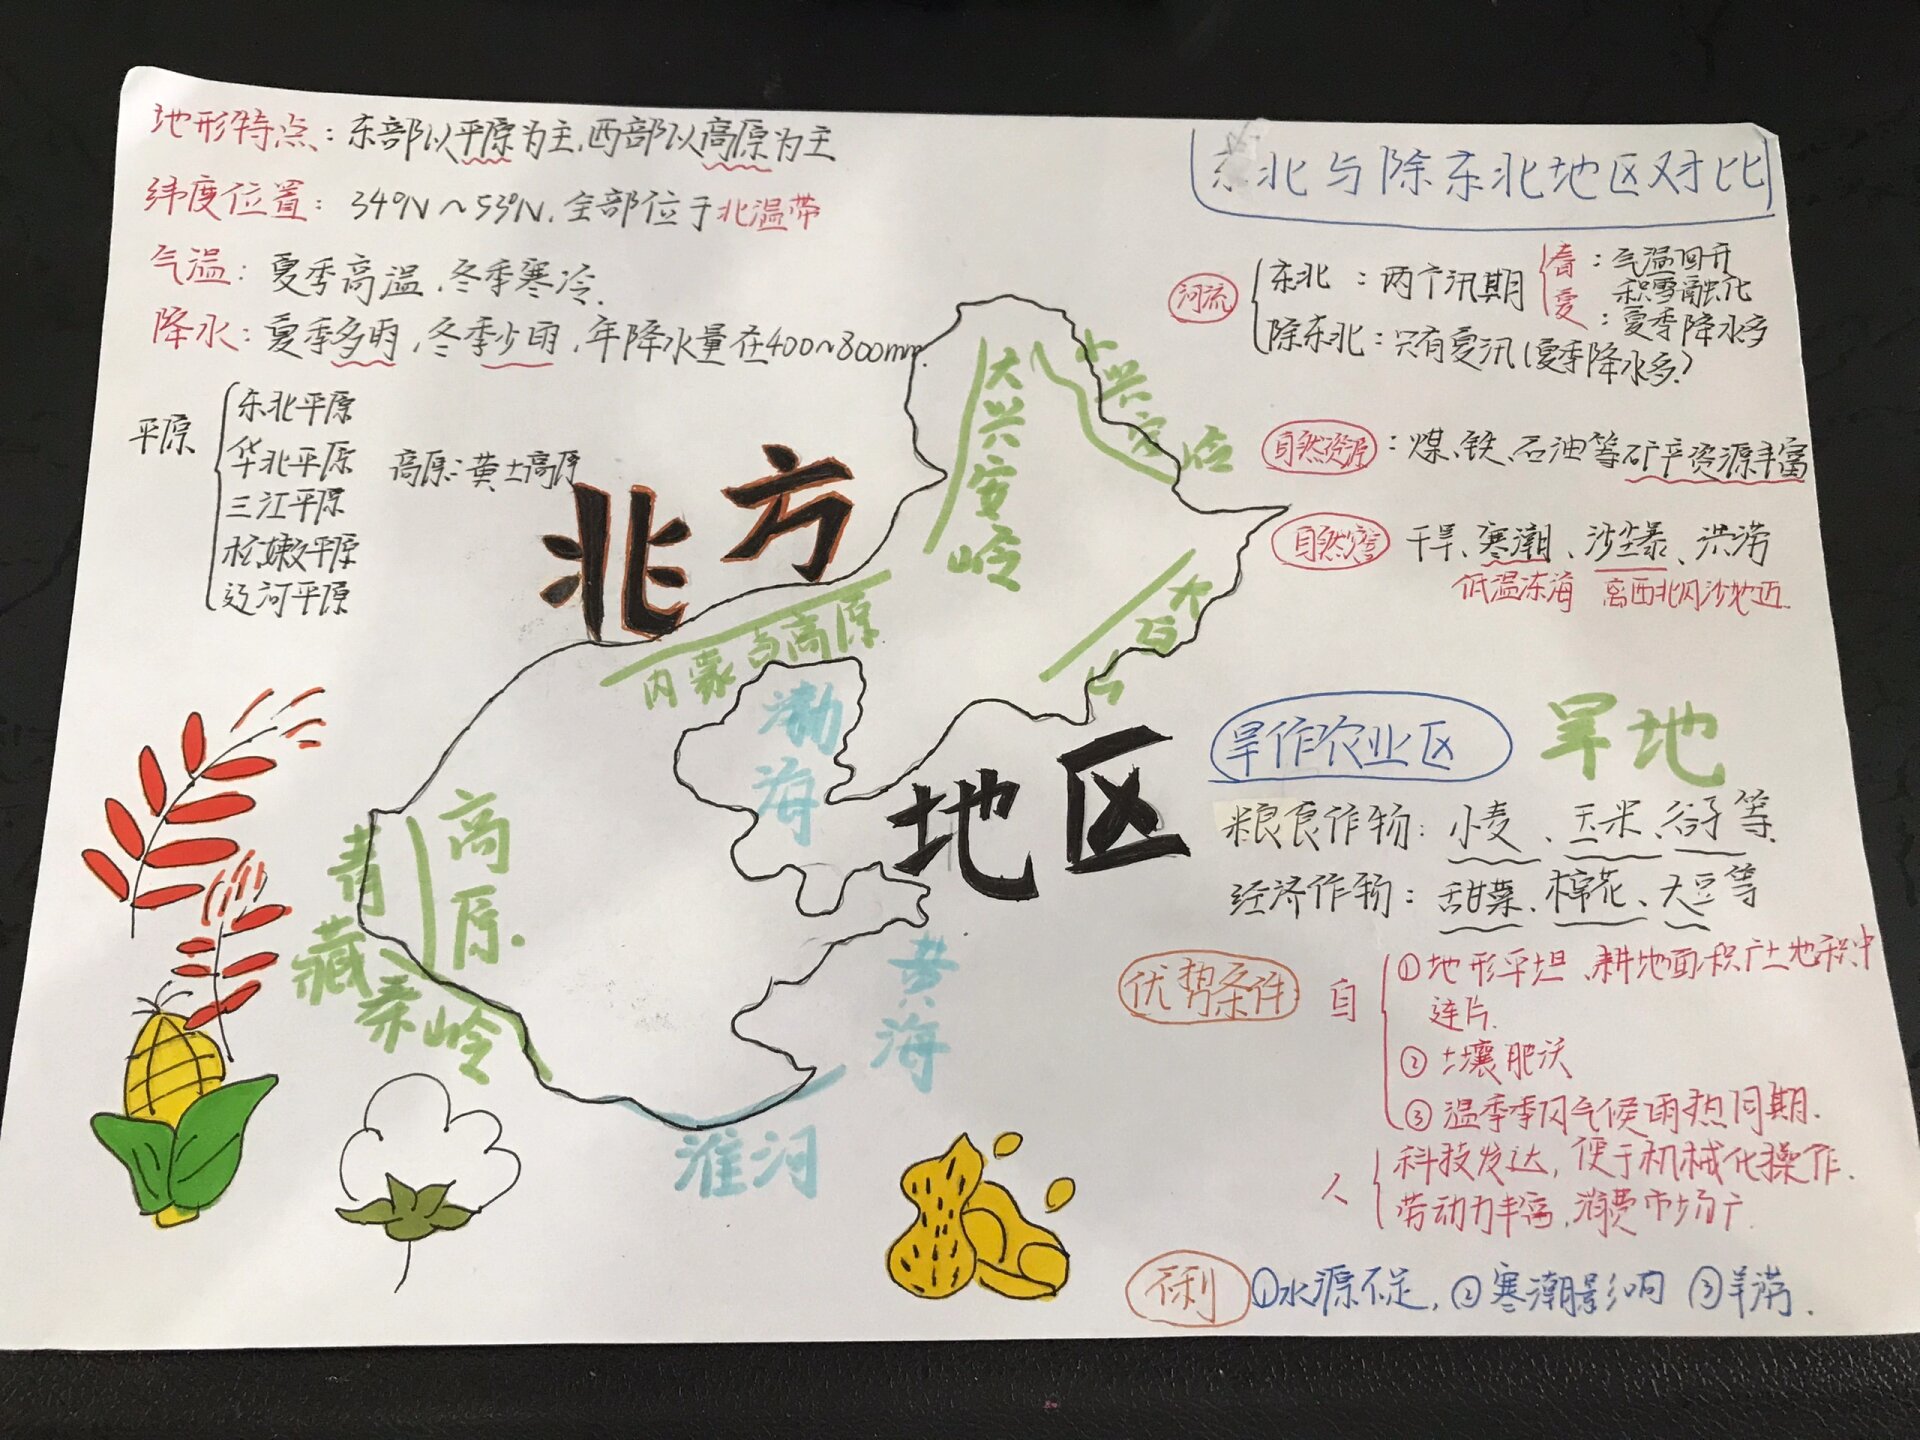 地形特点：东部以平原为主，西部以高原为主
纬度位置：34°N～53°N，全部位于北温带
气温：夏季高温，冬季寒冷.
降水：夏季多雨，冬季少雨，年降水量在400～800mm.
平原
东北平原
华北平原
三江平原
松嫩平原
辽河平原
高原：黄土高原
北方
地区
大兴安岭
小兴安岭
长白山
内蒙古高原
渤海
青藏
高原.
秦岭
黄海
淮河
东北与除东北地区对比
河流
东北：两个汛期
春：气温回升
积雪融化
夏：夏季降水多
除东北：只有夏汛(夏季降水多)
自然资源：煤、铁、石油等矿产资源丰富
自然灾害 干旱、寒潮、沙尘暴、洪涝
低温冻海 离西北风沙地近.
旱作农业区 旱地
粮食作物：小麦、玉米、谷子等.
经济作物：甜菜、棉花、大豆等
优势条件
自
①地形平坦、耕地面积广土地积中
连片.
②土壤肥沃
③温季季风气候雨热同期.
人
科技发达，便于机械化操作.
劳动力丰富，消费市场广.
不利 ①水源不足，②寒潮影响 ③旱涝.